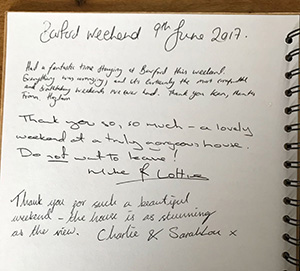 Barford Weekend 9th June 2017.
Had a fantastic time staying at Barford this weekend.
Everything was amazing, and its certainly the most
and birthday weekends we ever had. Thank you
From
Thank you so, so much - a lovely
weekend at a truly gorgeous house.
Do not want to leave!
Mike & Lottie
Thank you for such a beautiful
weekend - the house is as stunning
as the view. Charlie & SarahLou x